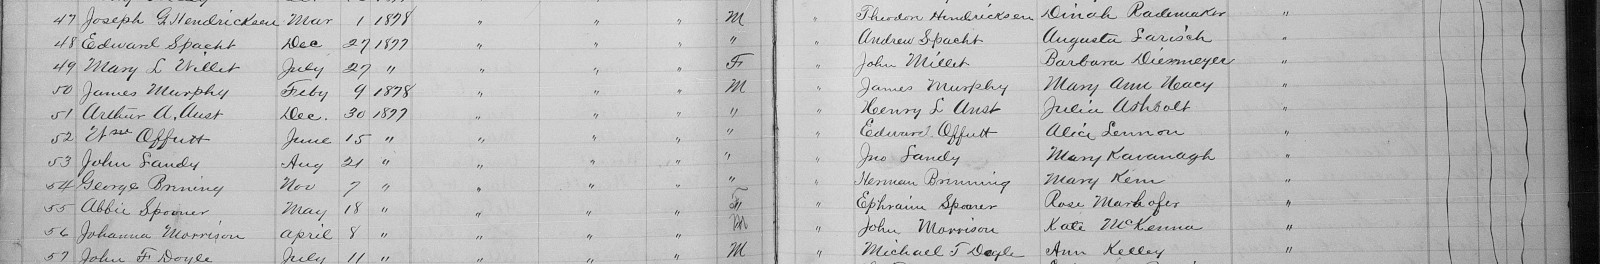 47 Joseph G Hendricksen Mar 1 1878 " " " M " Theodor Hendricksen Dinah Rademaker "
48 Edward Spacht Dec 27 1877 " " " " " Andrew Spacht Augusta Larisch "
49 Mary L Willet July 27 " " " " F " John Millet Barbara Diesmeyer "
50 James Murphy Feby 9 1878 " " " M " James Murphy Mary Ann Neacy "
51 Arthur A. Aust Dec. 30 1877 " " " " " Henry L Aust Julia Ashbolt "
52 Wm Offutt June 15 " " " " " " Edward Offutt Alice Lennon "
53 John Landy Aug 21 " " " " " " Jno Landy Mary Kavanagh "
54 George Brining Nov 7 " " " " " " Herman Brinning Mary Kem "
55 Abbie Spooner May 18 " " " " F " Ephraim Spooner Rose Markofer "
56 Johanna Morrison April 8 " " " " M " John Morrison Kate McKenna "
57 John F Doyle July 11 " " " " M " Michael T Doyle Ann Kelley "